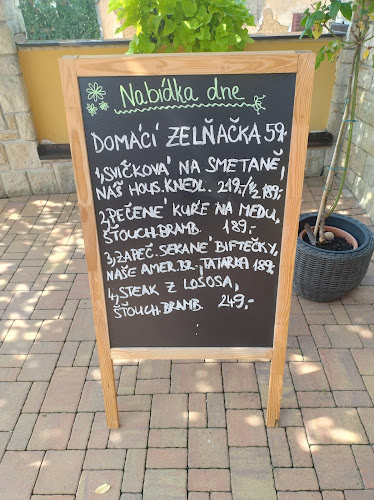 Nabídka dne
DOMÁCÍ ZELŇAČKA 59,-
1, SVÍČKOVÁ NA SMETANĚ,
NÁŠ HOUS. KNEDL. 219,-/½ 189,-
2, PEČENÉ KUŘE NA MEDU,
ŠŤOUCH. BRAMB. 189,-
3, ZAPEČ. SEKANÉ BIFTEČKY,
NAŠE AMER. BR., TATARKA 189,-
4, STEAK Z LOSOSA,
ŠŤOUCH. BRAMB. 249,-